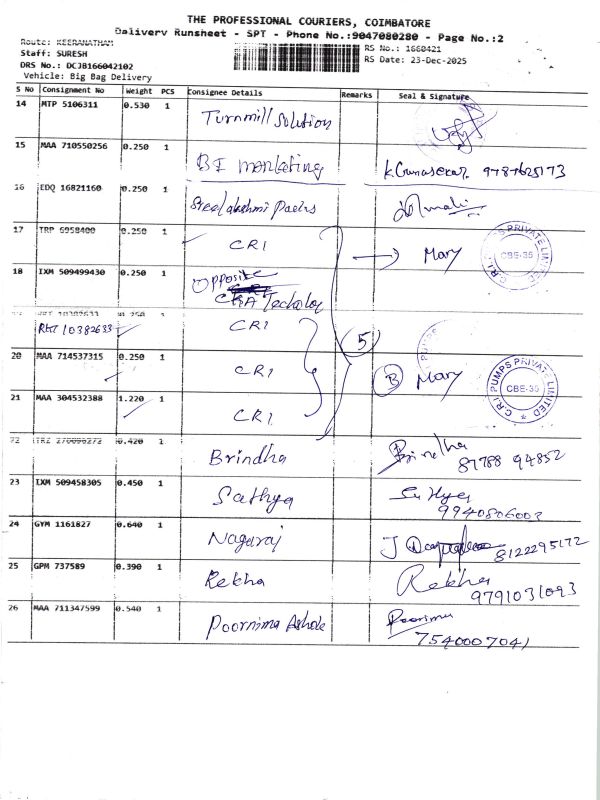 THE PROFESSIONAL COURIERS, COIMBATORE
Delivery Runsheet - SPT - Phone No.:9047080280 - Page No.:2
Route: KEERANATHAM
Staff: SURESH
DRS No.: DCJB166042102
Vehicle: Big Bag Delivery
RS No.: 1660421
RS Date: 23-Dec-2025
S No Consignment No Weight PCS Consignee Details Remarks Seal & Signature
14 MTP 5106311 0.530 1 Turnmill Solution
15 MAA 710550256 0.250 1 BI marketing K.Gunasekar. 9787625173
16 EDQ 16821160 0.250 1 Sreelakshmi
17 TRP 6958400 0.250 1 CRI → Mary
C.R.I. PUMPS PRIVATE LIMITED
CBE-35
18 IXM 509499430 0.250 1 Opposite
10382633 0.250 1 CRI
10382633
5
20 MAA 714537315 0.250 1 CRI
B Mary
C.R.I. PUMPS PRIVATE LIMITED
CBE-35
21 MAA 304532388 1.220 1 CRI
22 TRZ 270090272 0.420 1 Brindha Brindha
87788 94852
23 IXM 509458305 0.450 1 Sathya
9940806002
24 GYM 1161827 0.640 1 Nagaraj J 8122295172
25 GPM 737589 0.390 1 Rekha Rekha
9791031093
26 MAA 711347599 0.540 1 Poornima Poornima
7540007041